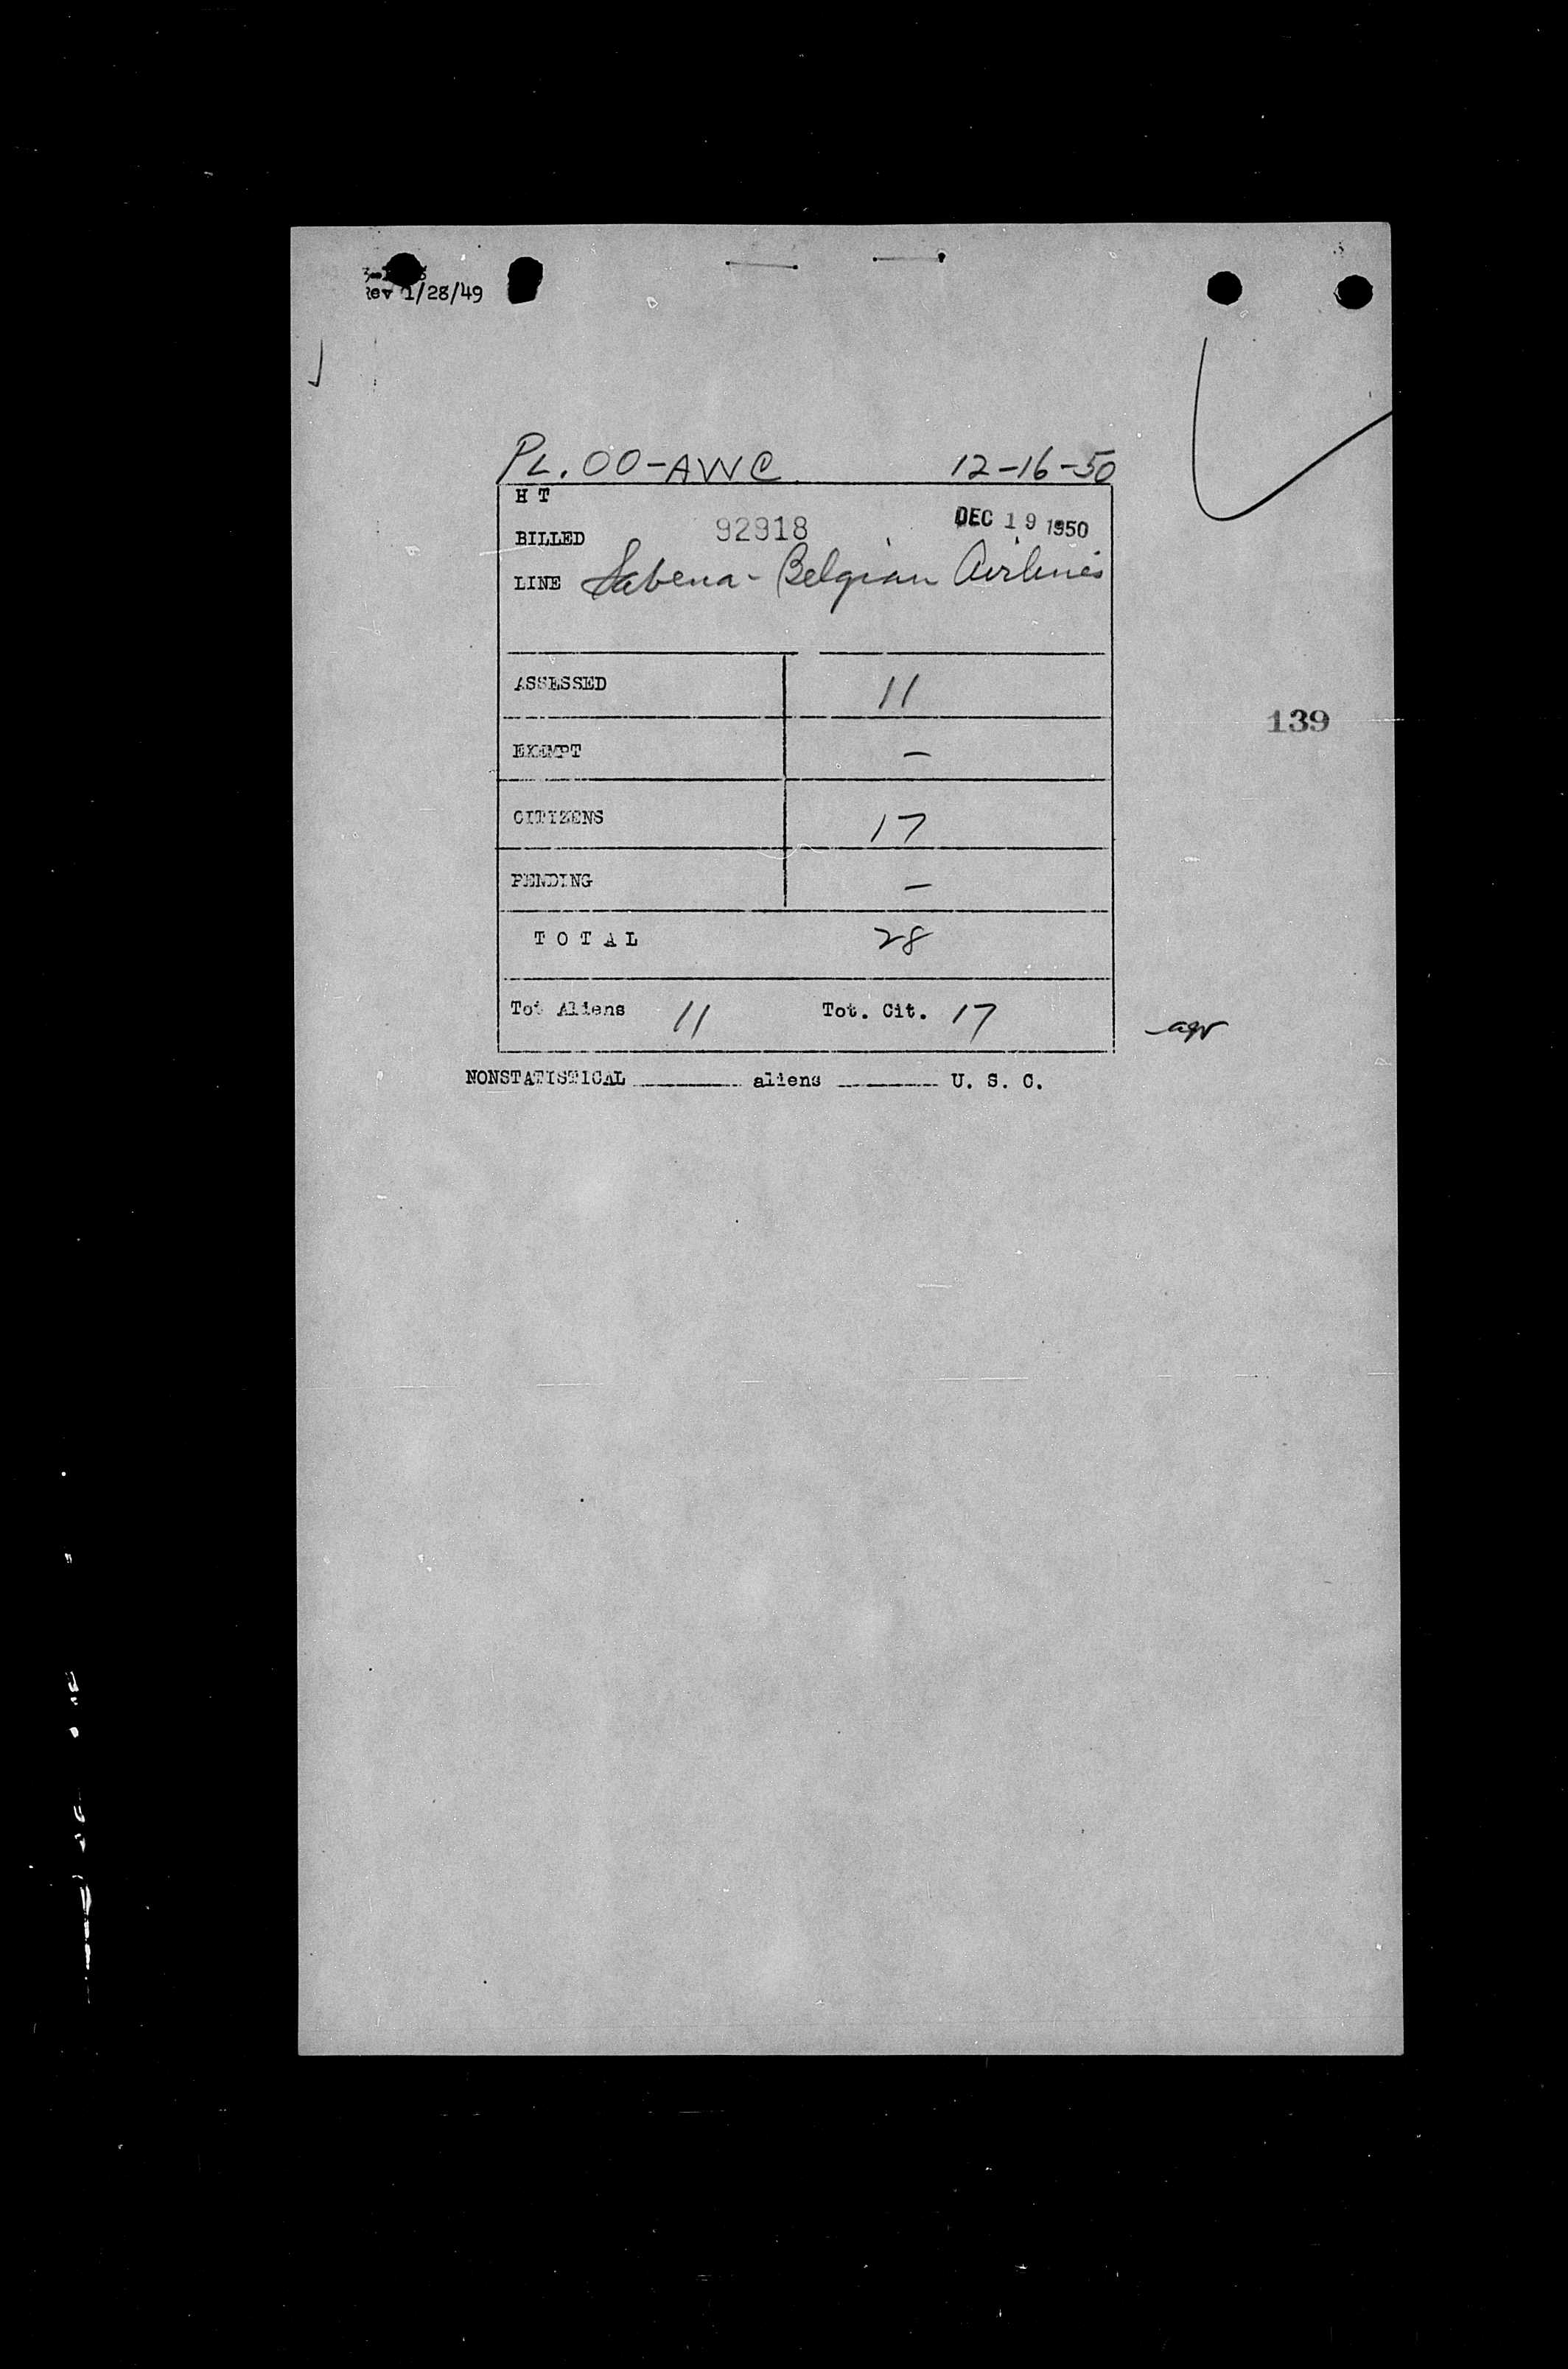 Rev 1/28/49
PL. OO-AWC 12-16-50
H T
BILLED 92918 DEC 19 1950
LINE Sabena - Belgian Airlines
ASSESSED 11
139
EXEMPT —
CITIZENS 17
PENDING —
T O T A L 28
Tot Aliens 11 Tot. Cit. 17
NONSTATISTICAL ________ aliens ________ U. S. C.